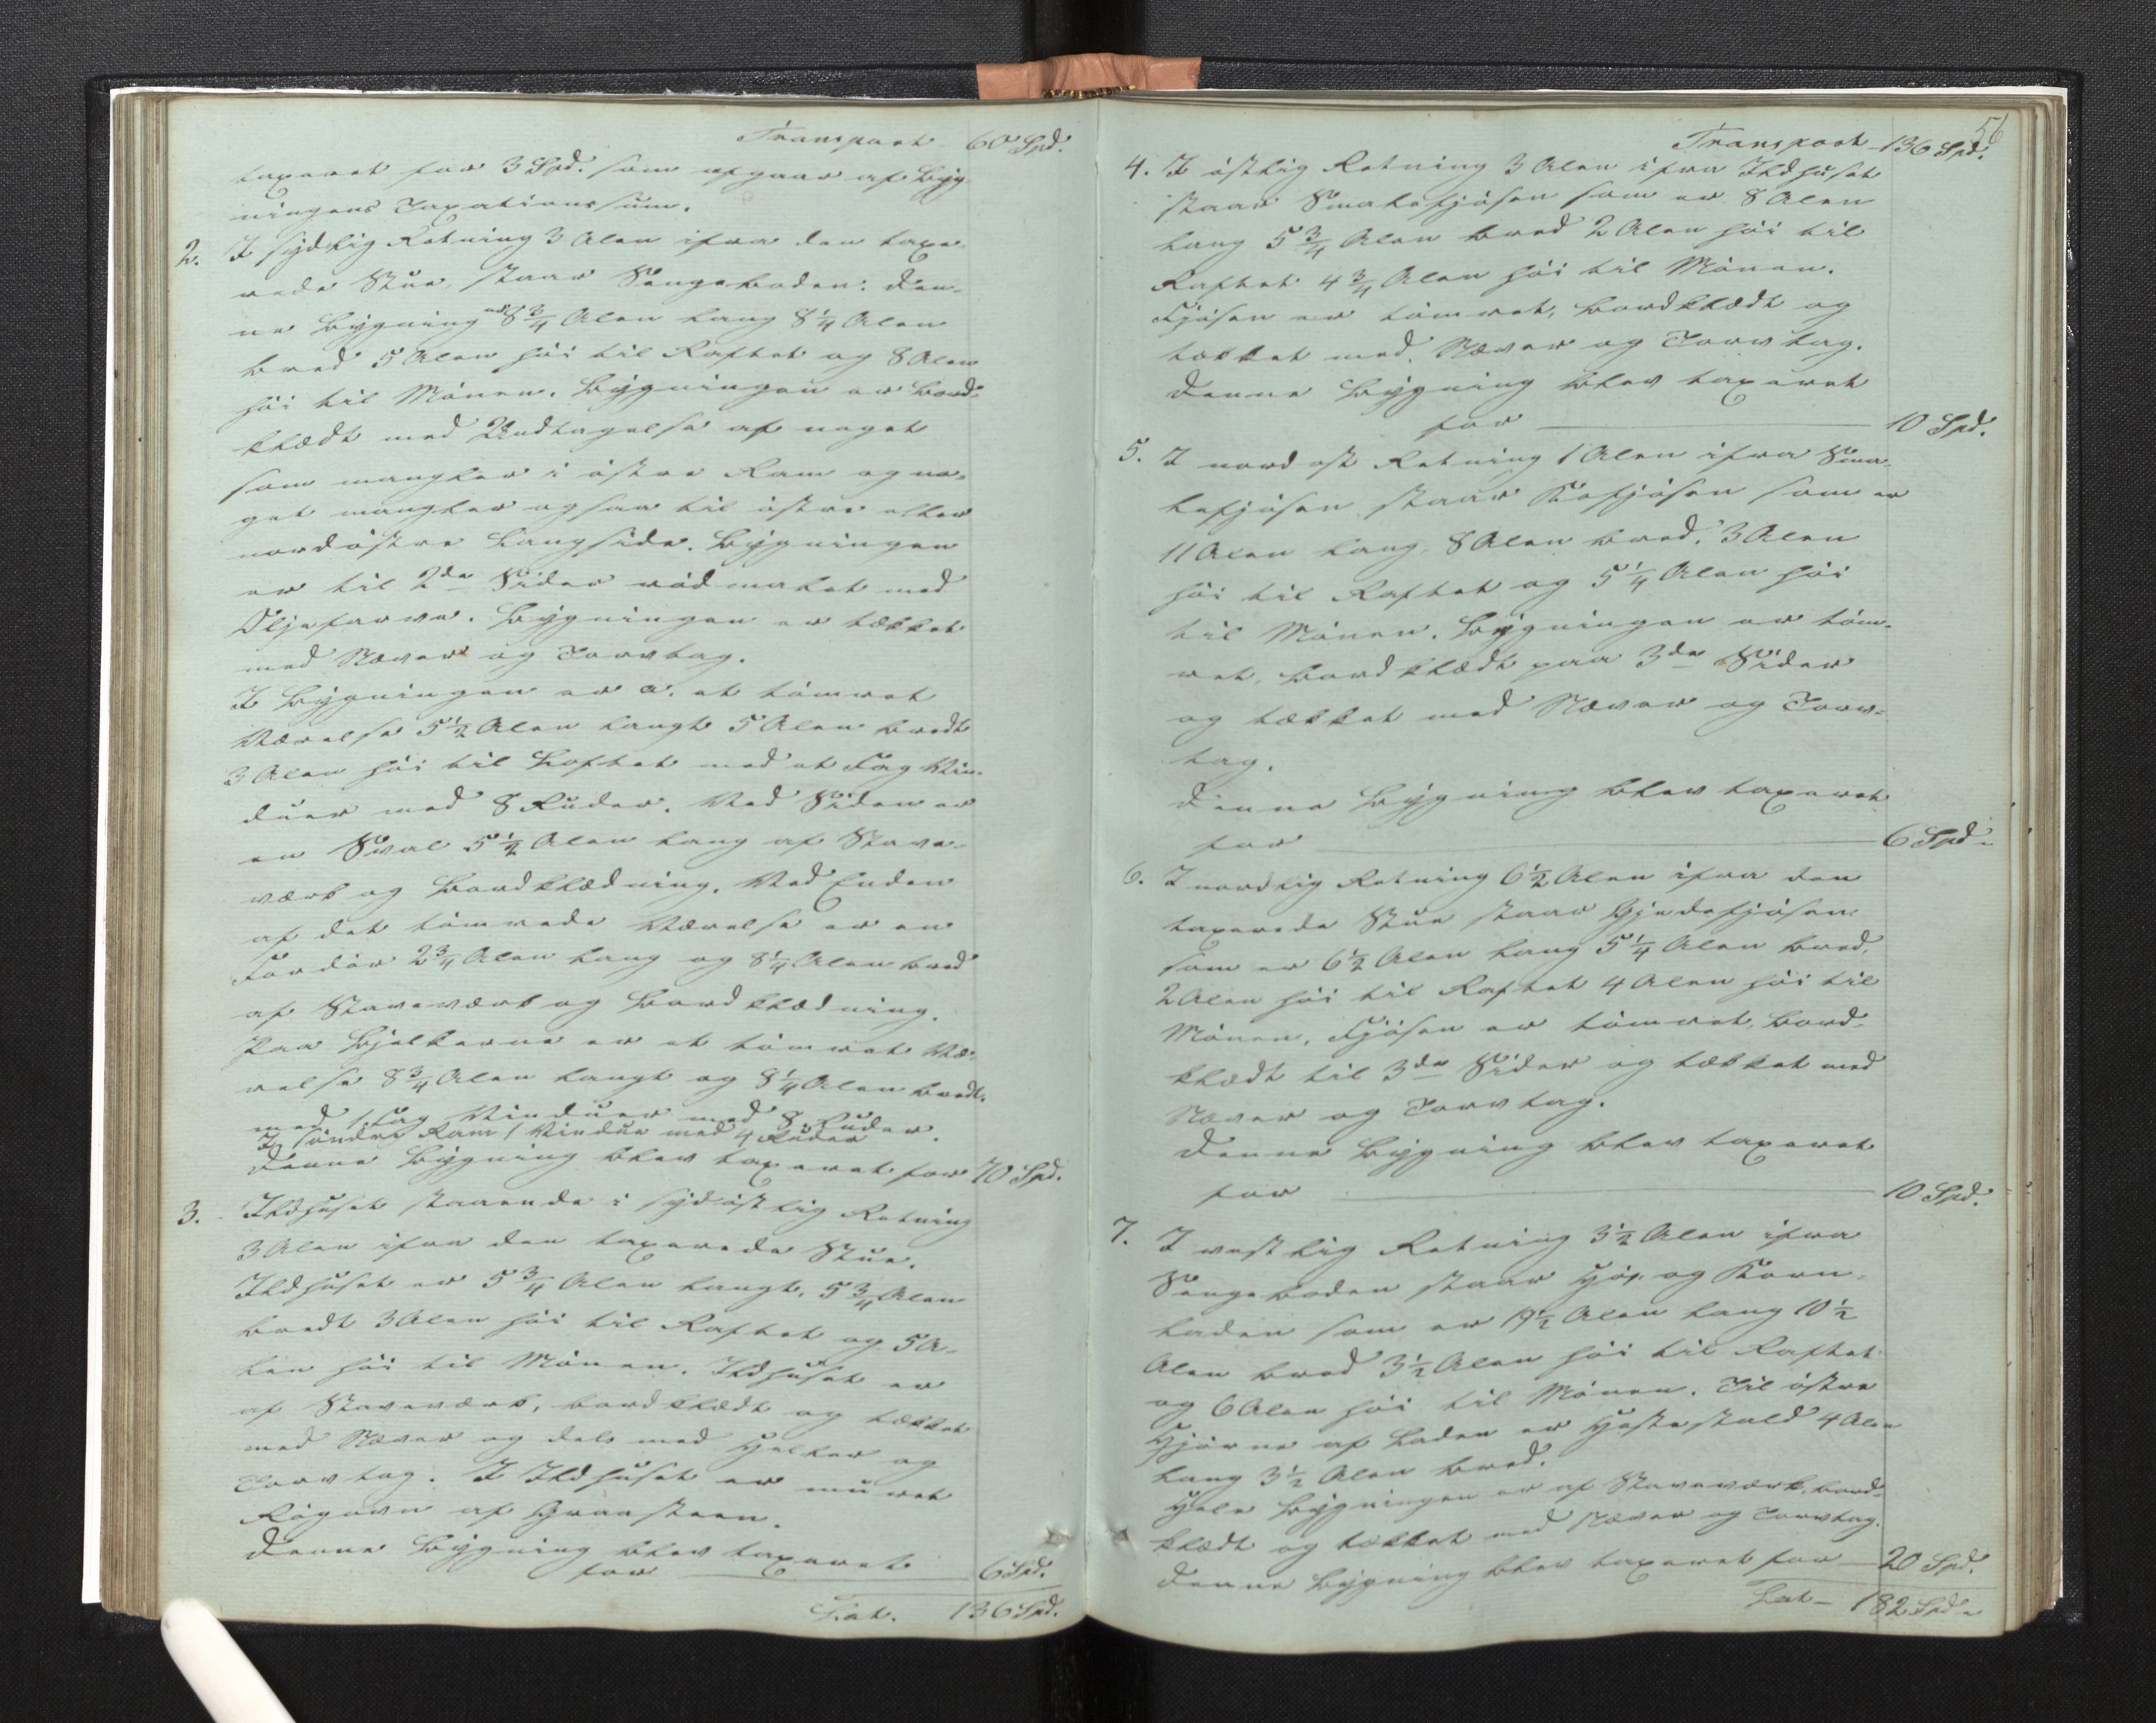 Transport 60 Spd.
taxeret for 3 Spd. som afgaar af Byg-
ningens Taxationssum.
2. I sydlig Retning 3 Alen ifra den taxe-
rede Stue, staar Sengeboden: den-
ne Bygning er 8 3/4 Alen lang 8 1/4 Alen
bred 5 Alen høi til Raftet og 8 Alen
høi til Mønen. Bygningen er bord-
klædt med Undtagelse af noget
som mangler i østre Ram og no-
get mangler ogsaa til østre eller
nordøstre Langside. Bygningen
er til 2de Sider rødmalet med
Oljefarve. Bygningen er tækket
med Næver og Torvtag.
I Bygningen er a. et tømret
Værelse 5 1/2 Alen langt 5 Alen bredt
3 Alen høi til Loftet med et Fag Vin-
duer med 8 Ruder. Ved Siden er
en Sval 5 1/2 Alen lang af Stave-
værk og Bordklædning. Ved Enden
af det tømrede Værelse er en
Fordør 2 3/4 Alen lang og 8 1/4 Alen bred
af Staveværk og Bordklædning.
Paa Bjelkerne er et tømret Væ-
relse 8 3/4 Alen langt og 8 1/4 Alen bredt.
med 1 Fag Vinduer med 8 Ruder.
I søndre Ram 1 Vindue med 4 Ruder
Denne Bygning blev taxeret for 70 Spd.
3. Ildhuset staaende i sydøstlig Retning
3 Alen ifra den taxerede Stue.
Ildhuset er 5 3/4 Alen langt, 5 3/4 Alen
bredt 3 Alen høi til Raftet og 5 A-
len høi til Mønen. Ildhuset er
af Staveværk, bordklædt og tækket
med Næver og dels med Heller og
Torvtag. I Ildhuset er muret
Røgovn af Graasteen.
Denne Bygning blev taxeret
for 6 Spd.
Lat. 136 Spd.
56
Transport 136 Spd.
4. I østlig Retning 3 Alen ifra Ildhuset
staar Smalefjøsen som er 8 Alen
lang 5 3/4 Alen bred 2 Alen høi til
Raftet 4 3/4 Alen høi til Mønen.
Fjøsen er tømret, bordklædt og
tækket med Næver og Torvtag.
Denne Bygning blev taxeret
for 10 Spd.
5. I nordost Retning 1 Alen ifra Sma-
lefjøsen staar Kofjøsen som er
11 Alen lang 8 Alen bred, 3 Alen
høi til Raftet og 5 1/4 Alen høi
til Mønen. Bygningen er tøm-
ret, bordklædt paa 3de Sider
og tækket med Næver og Torv-
tag.
Denne Bygning blev taxeret
for 6 Spd.
6. I nordlig Retning 6 1/2 Alen ifra den
taxerede Stue staar Gjedefjøsen
som er 6 1/2 Alen lang 5 1/4 Alen bred,
2 Alen høi til Raftet 4 Alen høi til
Mønen. Fjøsen er tømret, bord-
klædt til 3de Sider og tækket med
Næver og Torvtag.
Denne Bygning blev taxeret
for 10 Spd.
7. I vestlig Retning 3 1/2 Alen ifra
Sengeboden staar Hø- og Korn-
laden som er 19 1/2 Alen lang 10 1/2
Alen bred 3 1/2 Alen høi til Raftet
og 6 Alen høi til Mønen. Til østre
Hjørne af Laden er Hestestald 4 Alen
lang 3 1/2 Alen bred.
Hele Bygningen er af Staveværk, bord-
klædt og tækket med Næver og Torvtag.
Denne Bygning blev taxeret for 20 Spd.
Lat 182 Spd.